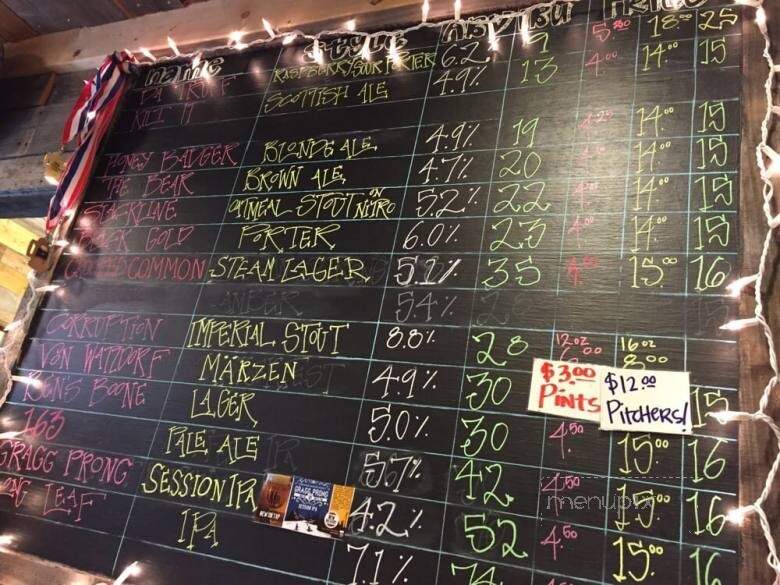 NAME STYLE ABV IBU PRICE
RASPBERRY SOUR PORTER 6.2 9 18.00 25
SCOTTISH ALE 4.9% 13 4.00 14.00 15
HONEY BADGER BLONDE ALE 4.9% 19 14.00 15
THE BEAR BROWN ALE 4.7% 20 14.00 15
OATMEAL STOUT ON NITRO 5.2% 22 14.00 15
BLACK GOLD PORTER 6.0% 23 14.00 15
COMMON STEAM LAGER 5.1% 35 15.00 16
AMBER 5.4% 15
CORRUPTION IMPERIAL STOUT 8.8% 28 12oz 16oz 8.00
VON WATZDORF MÄRZEN 4.9% 30 $3.00 PINTS $12.00 PITCHERS! 15
BENS BOONE LAGER 5.0% 30 4.50 15.00 16
163 PALE ALE 5.7% 42 4.50 15.00 16
GRAGG PRONG SESSION IPA GRAGG PRONG SESSION IPA 4.2% 52 4.50 15.00 16
LEAF IPA 7.1%
menupix